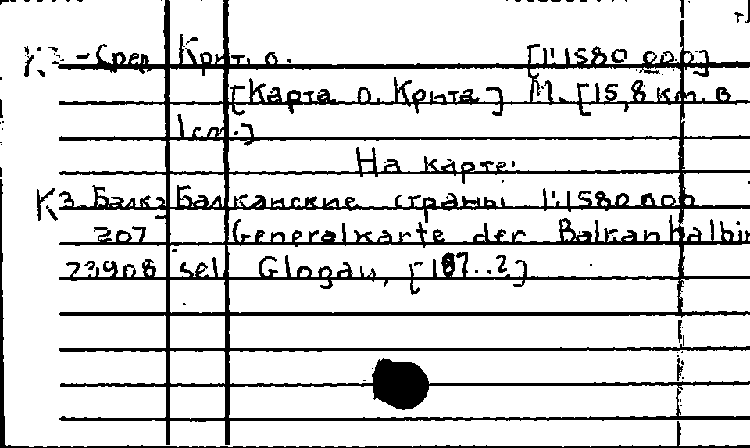 К3-Сред Крит, о. [1:1580 000]
[Карта о. Крита] М. [15,8 км. в
1 см.]
На карте:
К3-Балк Балканские страны 1:1580 000
207 Generalkarte der Balkanhalbin
23908 sel Glogau, [187..?]